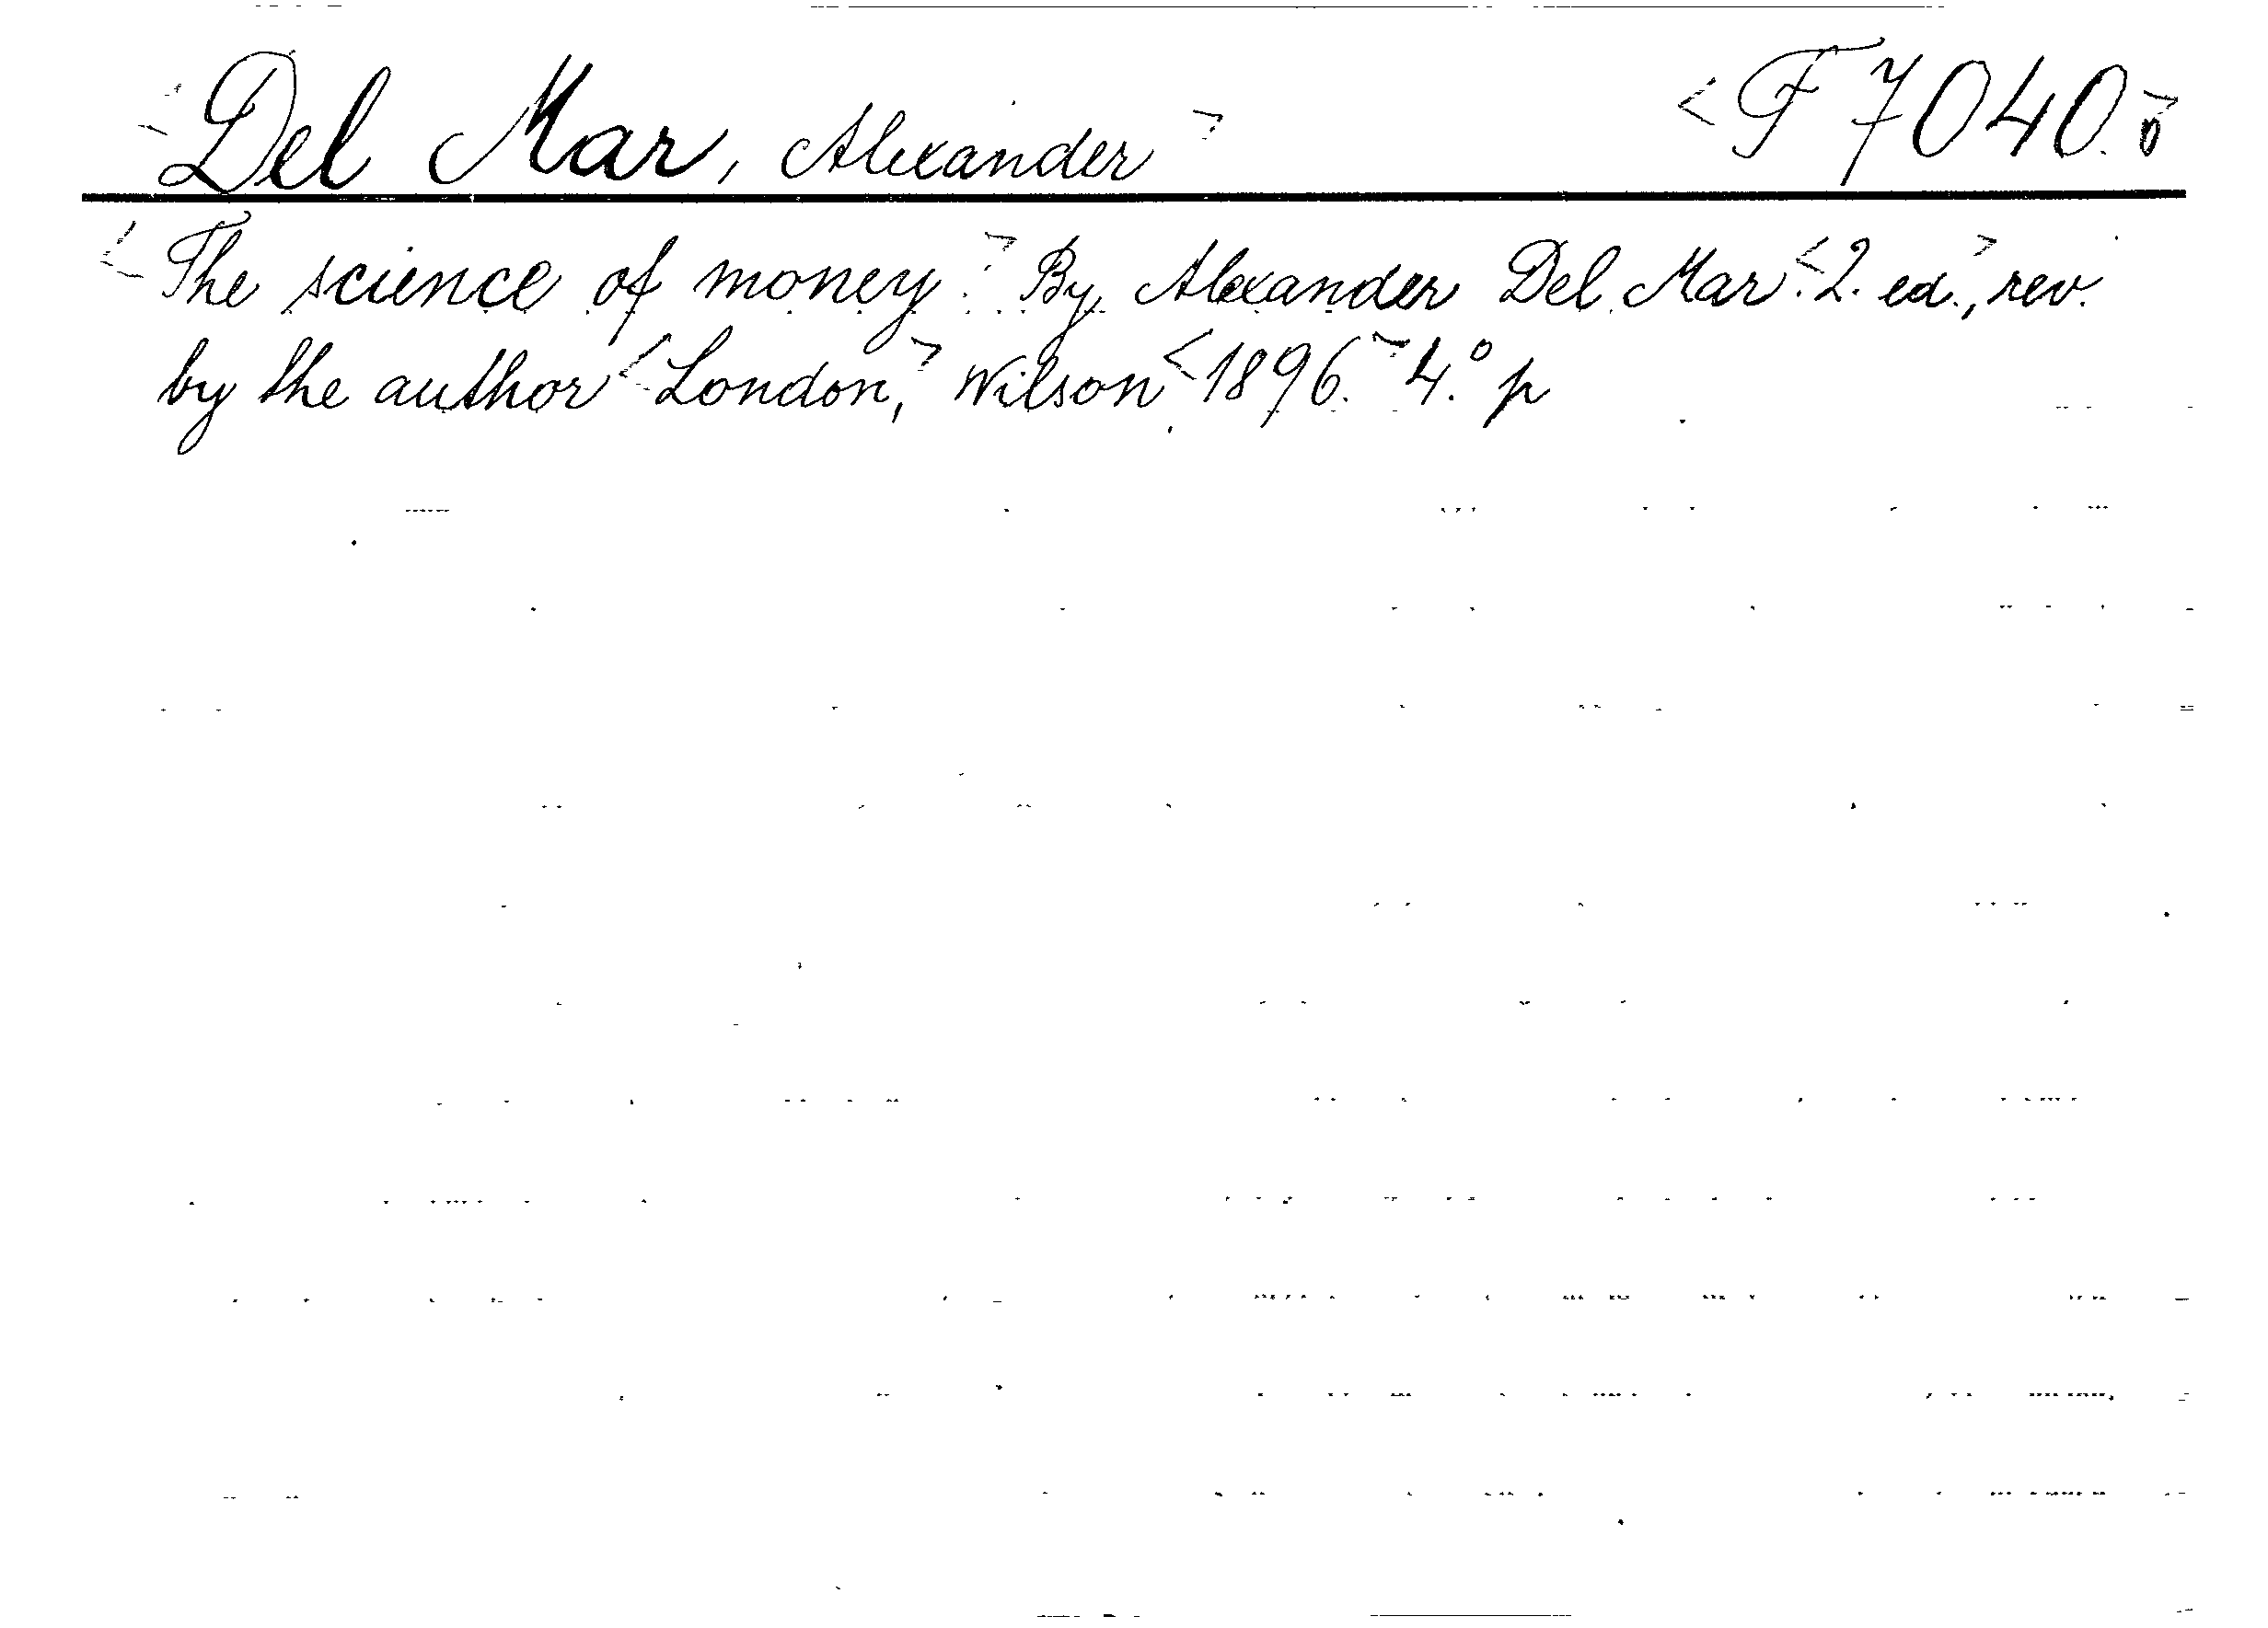 <Del Mar, Alexander> <F 7040.>
<The science of money.> By Alexander Del Mar. <2. ed.,> rev.
by the author <London,> Wilson <1896.> 4.° p